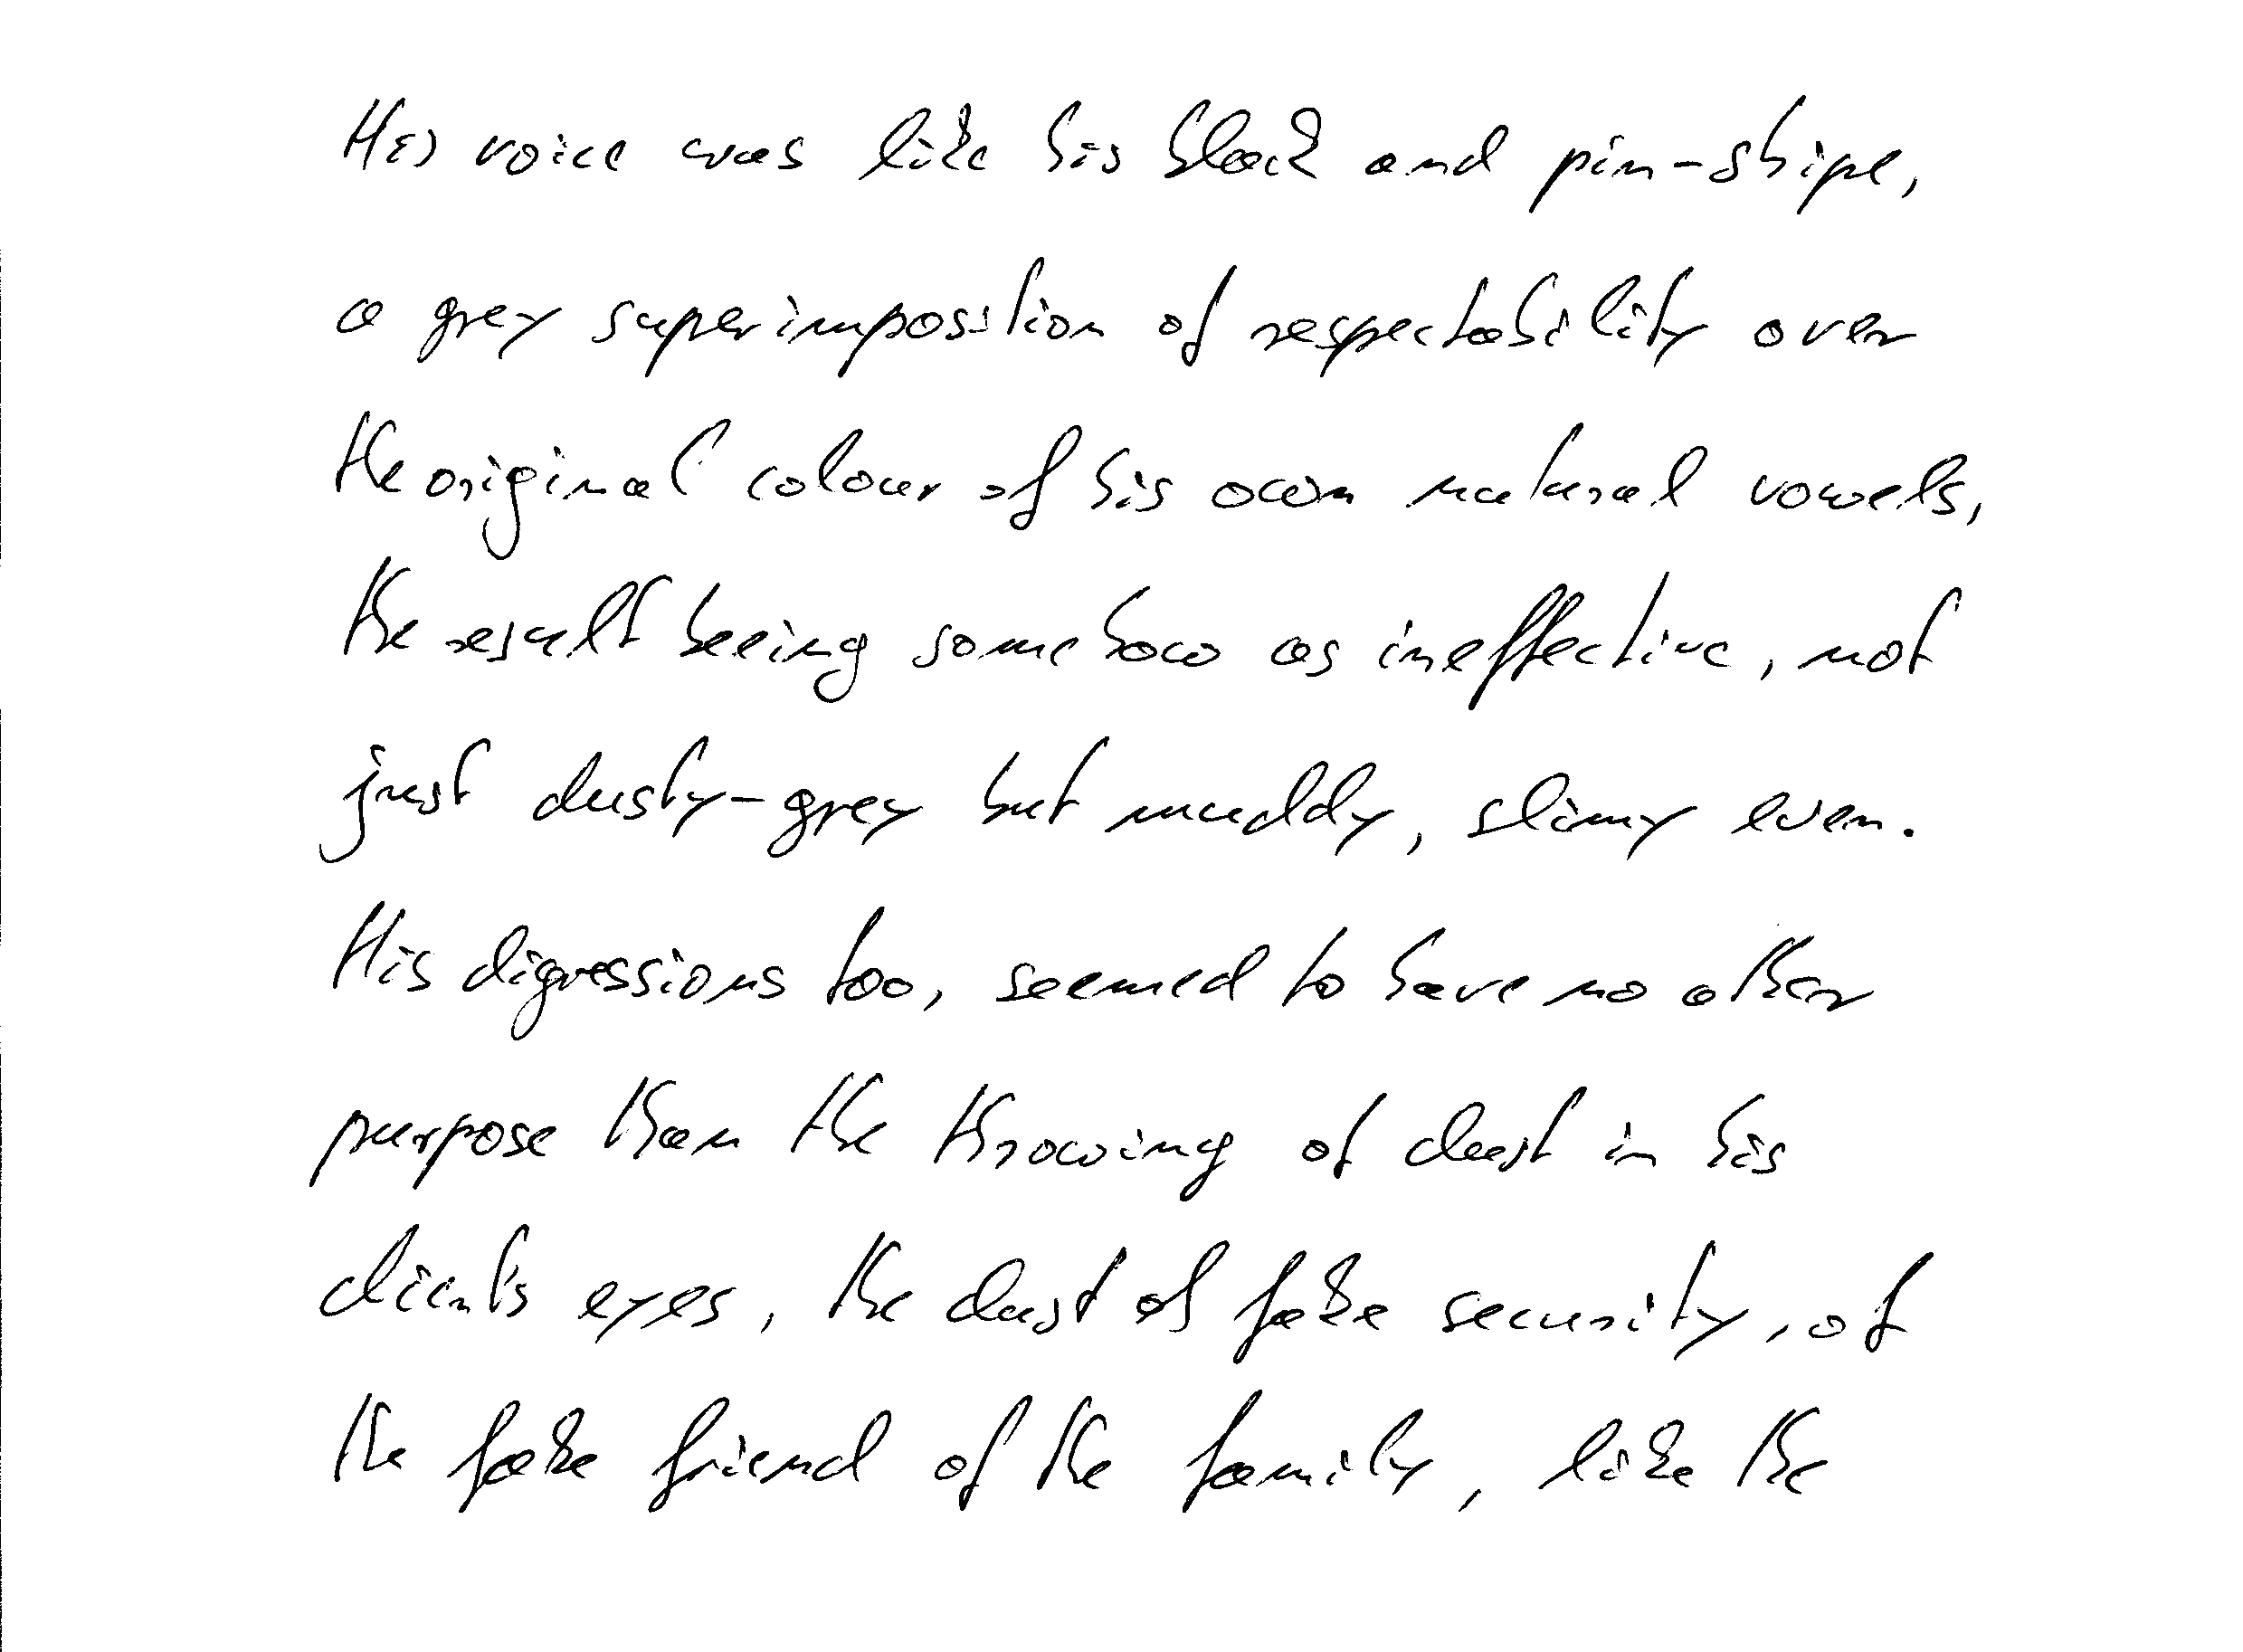 His voice was like his black and pin-stripe,
a grey superimposition of respectability over
the original colour of his own natural vowels,
the result being somehow as ineffective, not
just dusty-grey but muddy, slimy even.
His digressions too, seemed to have no other
purpose than the throwing of dust in his
client's eyes, the dust of fake security, of
the fake friend of the family, like the